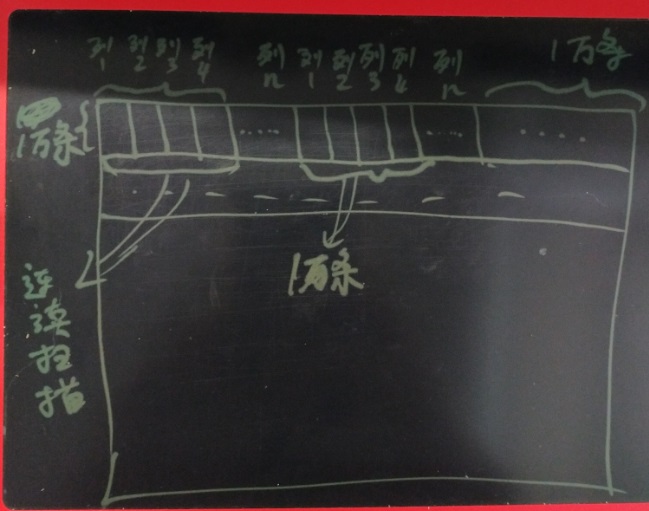 列1 列2 列3 列4 列n 列1 列2 列3 列4 列n 1万条
1万条
1万条
连续扫描